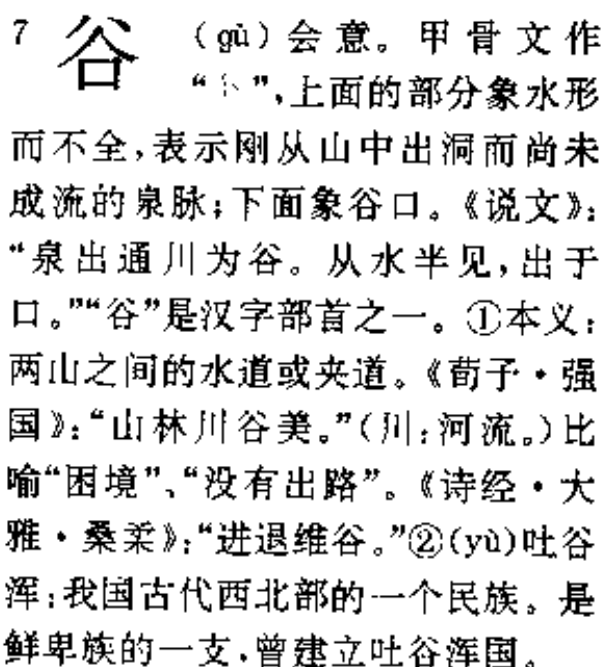 7 谷 (gù)会意。甲骨文作
“”,上面的部分象水形
而不全,表示刚从山中出洞而尚未
成流的泉脉;下面象谷口。《说文》:
“泉出通川为谷。从水半见,出于
口。”“谷”是汉字部首之一。①本义:
两山之间的水道或夹道。《荀子·强
国》:“山林川谷美。”(川:河流。)比
喻“困境”、“没有出路”。《诗经·大
雅·桑柔》:“进退维谷。”②(yù)吐谷
浑:我国古代西北部的一个民族。是
鲜卑族的一支,曾建立吐谷浑国。